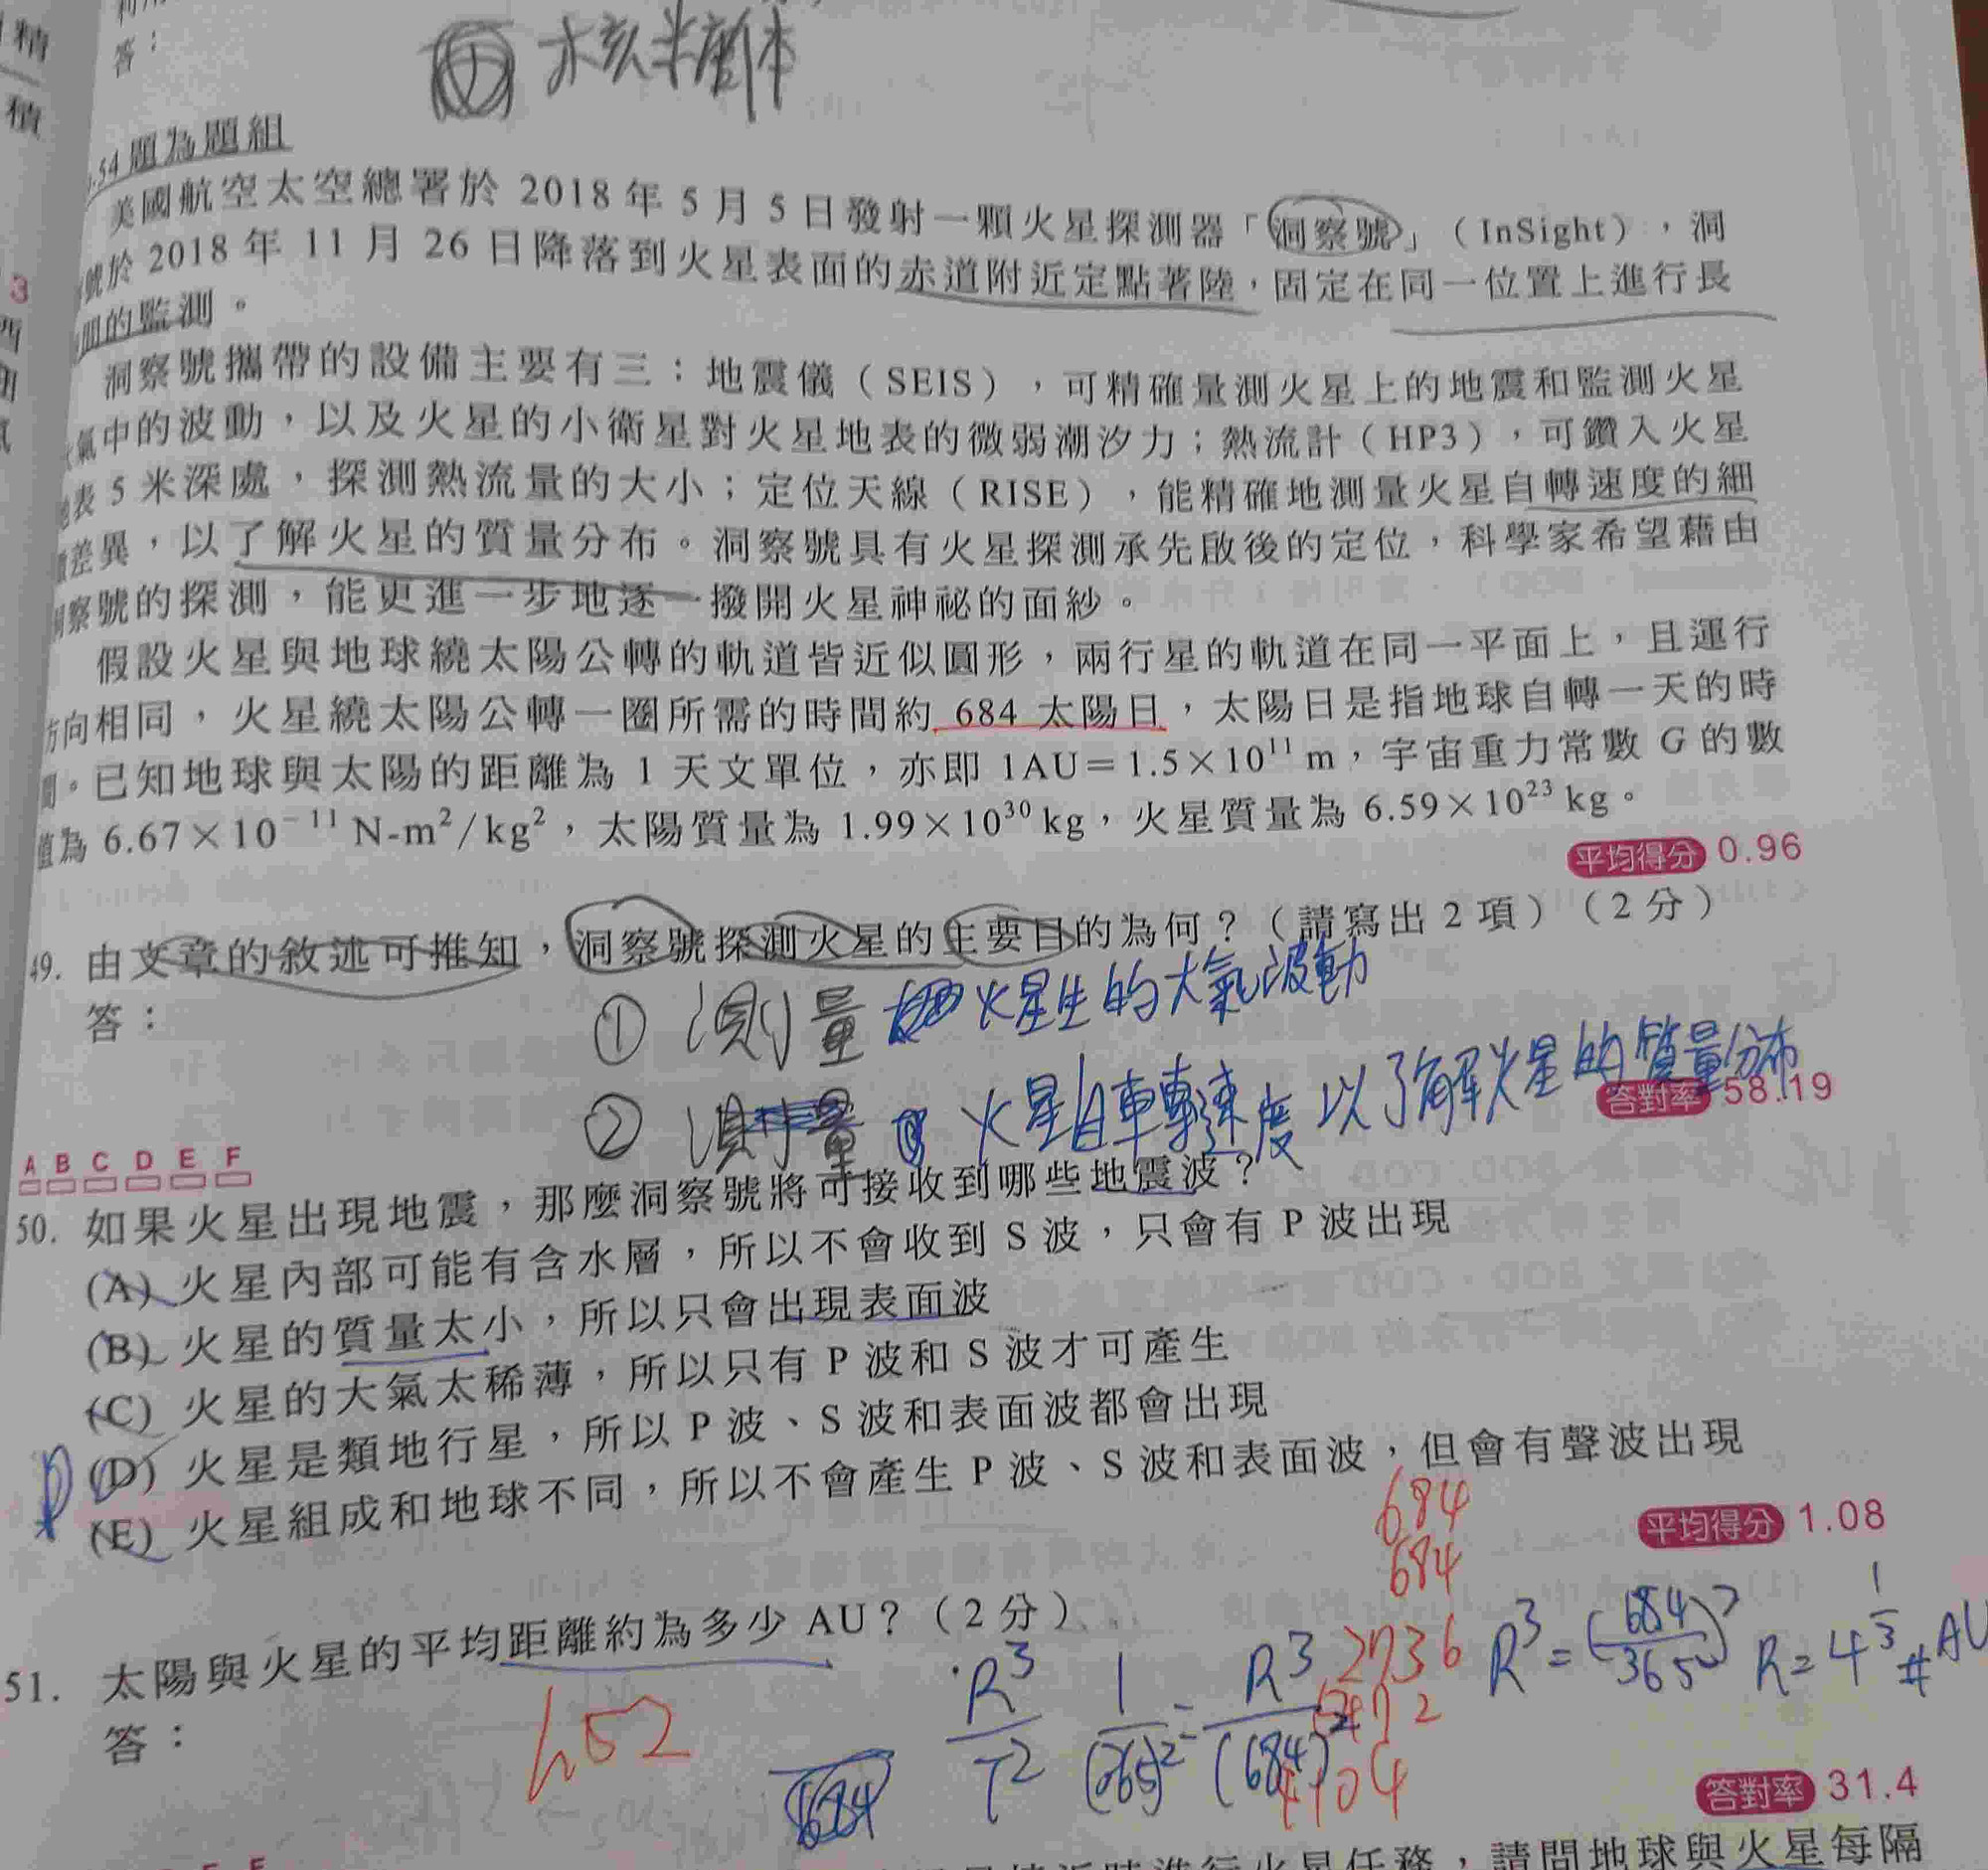 精
積
答：
核半衰体
54題為題組
美國航空太空總署於 2018 年 5 月 5 日發射一顆火星探測器「洞察號」（InSight），洞
號於 2018 年 11 月 26 日降落到火星表面的赤道附近定點著陸，固定在同一位置上進行長
間的監測。
洞察號攜帶的設備主要有三：地震儀（SEIS），可精確量測火星上的地震和監測火星
氣中的波動，以及火星的小衛星對火星地表的微弱潮汐力；熱流計（HP3），可鑽入火星
表 5 米深處，探測熱流量的大小；定位天線（RISE），能精確地測量火星自轉速度的細
差異，以了解火星的質量分布。洞察號具有火星探測承先啟後的定位，科學家希望藉由
察號的探測，能更進一步地逐一撥開火星神祕的面紗。
假設火星與地球繞太陽公轉的軌道皆近似圓形，兩行星的軌道在同一平面上，且運行
方向相同，火星繞太陽公轉一圈所需的時間約 684 太陽日，太陽日是指地球自轉一天的時
間。已知地球與太陽的距離為 1 天文單位，亦即 1AU＝1.5×10¹¹ m，宇宙重力常數 G 的數
值為 6.67×10⁻¹¹ N-m²/kg²，太陽質量為 1.99×10³⁰ kg，火星質量為 6.59×10²³ kg。
平均得分 0.96
49. 由文章的敘述可推知，洞察號探測火星的主要目的為何？（請寫出 2 項）（2 分）
答：
① 測量 火星生的大氣波動
② 測量 火星自轉速度以了解火星的質量分布
答對率 58.19
A B C D E F
50. 如果火星出現地震，那麼洞察號將可接收到哪些地震波？
(A) 火星內部可能有含水層，所以不會收到 S 波，只會有 P 波出現
(B) 火星的質量太小，所以只會出現表面波
(C) 火星的大氣太稀薄，所以只有 P 波和 S 波才可產生
(D) 火星是類地行星，所以 P 波、S 波和表面波都會出現
(E) 火星組成和地球不同，所以不會產生 P 波、S 波和表面波，但會有聲波出現
684
684
2736
5472
4104
平均得分 1.08
51. 太陽與火星的平均距離約為多少 AU？（2 分）
答：
1.52
R³/T² 1/(365)² = R³/(684)²
R³ = (684/365)² R = 4^(1/3) # AU
684
答對率 31.4
進行火星任務，請問地球與火星每隔